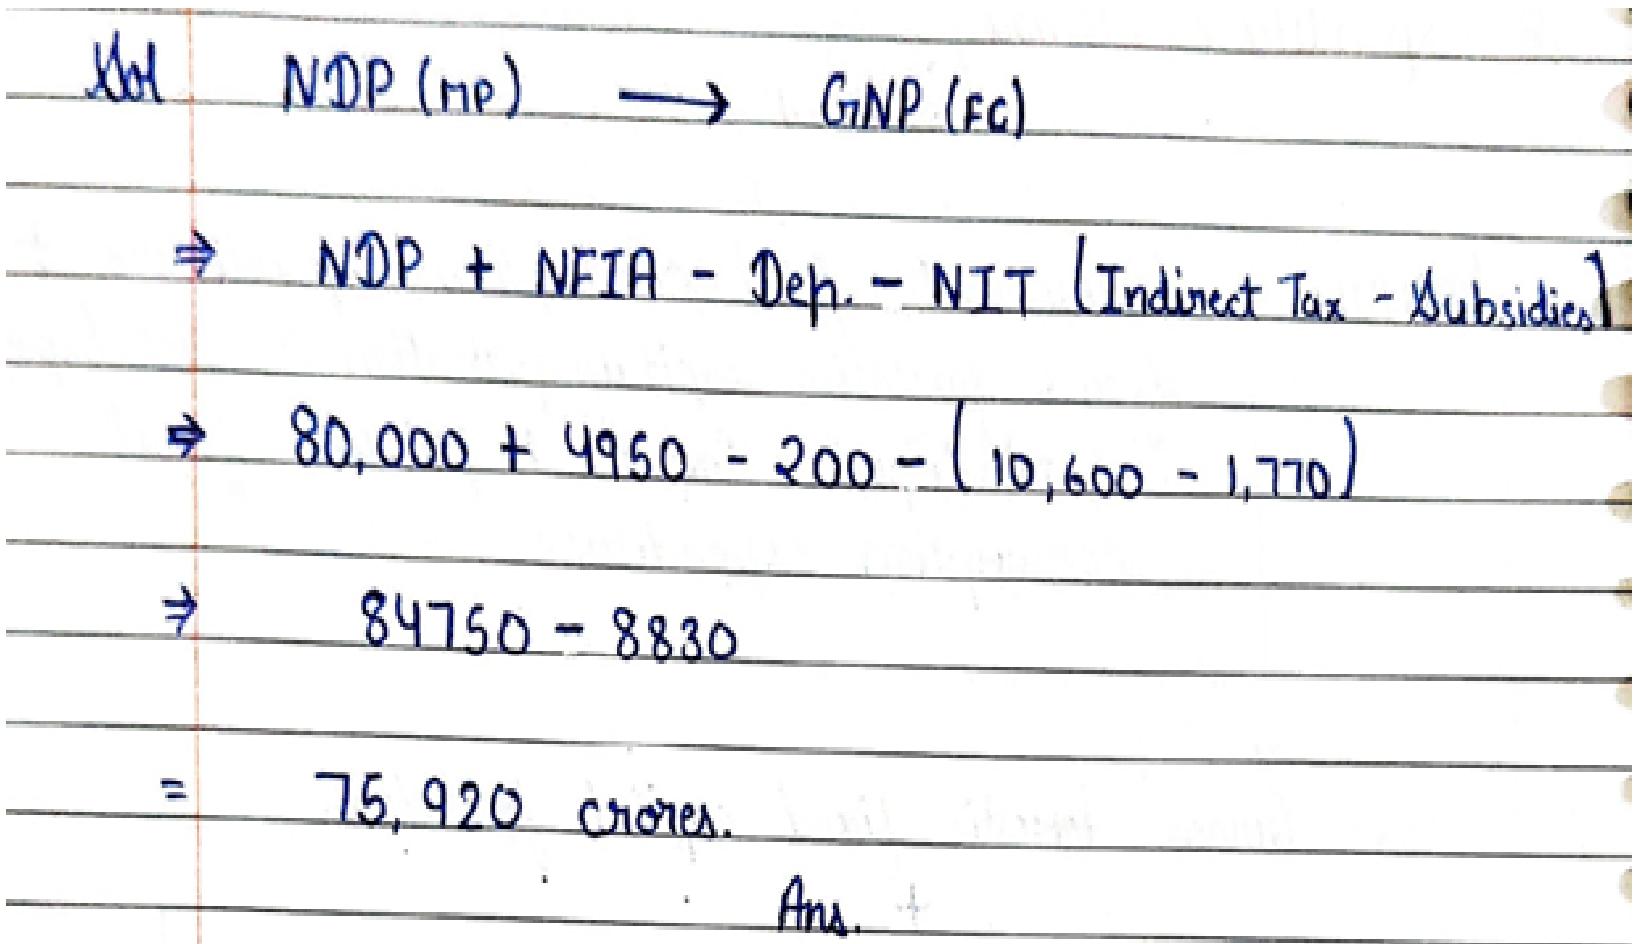 Sol NDP (MP) → GNP (FC)
⇒ NDP + NFIA - Dep. - NIT (Indirect Tax - Subsidies)
⇒ 80,000 + 4950 - 200 - (10,600 - 1,770)
⇒ 84750 - 8830
= 75,920 crores.
Ans.